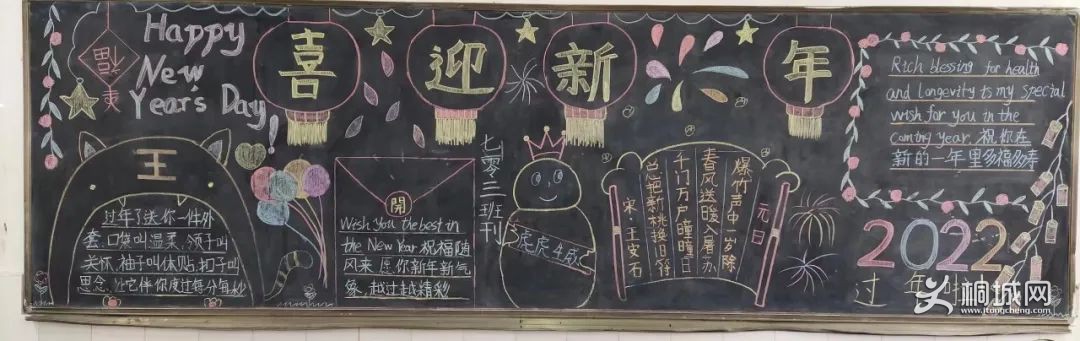 Happy
New
Year's Day!
喜迎新年
Rich blessing for health
and longevity is my special
wish for you in the
coming year. 祝你在
新的一年里多福多寿
王
过年了送你一件外
套,口袋叫温柔,领子叫
关怀,袖子叫体贴,扣子叫
思念,让它伴你度过每分每秒
開
Wish you the best in
the New Year 祝福随
风来,愿你新年新气
象,越过越精彩
七零二班刊
虎虎生威
元日
爆竹声中一岁除
春风送暖入屠苏
千门万户曈曈日
总把新桃换旧符
宋·王安石
2022
过年
桐城网
www.itongcheng.com